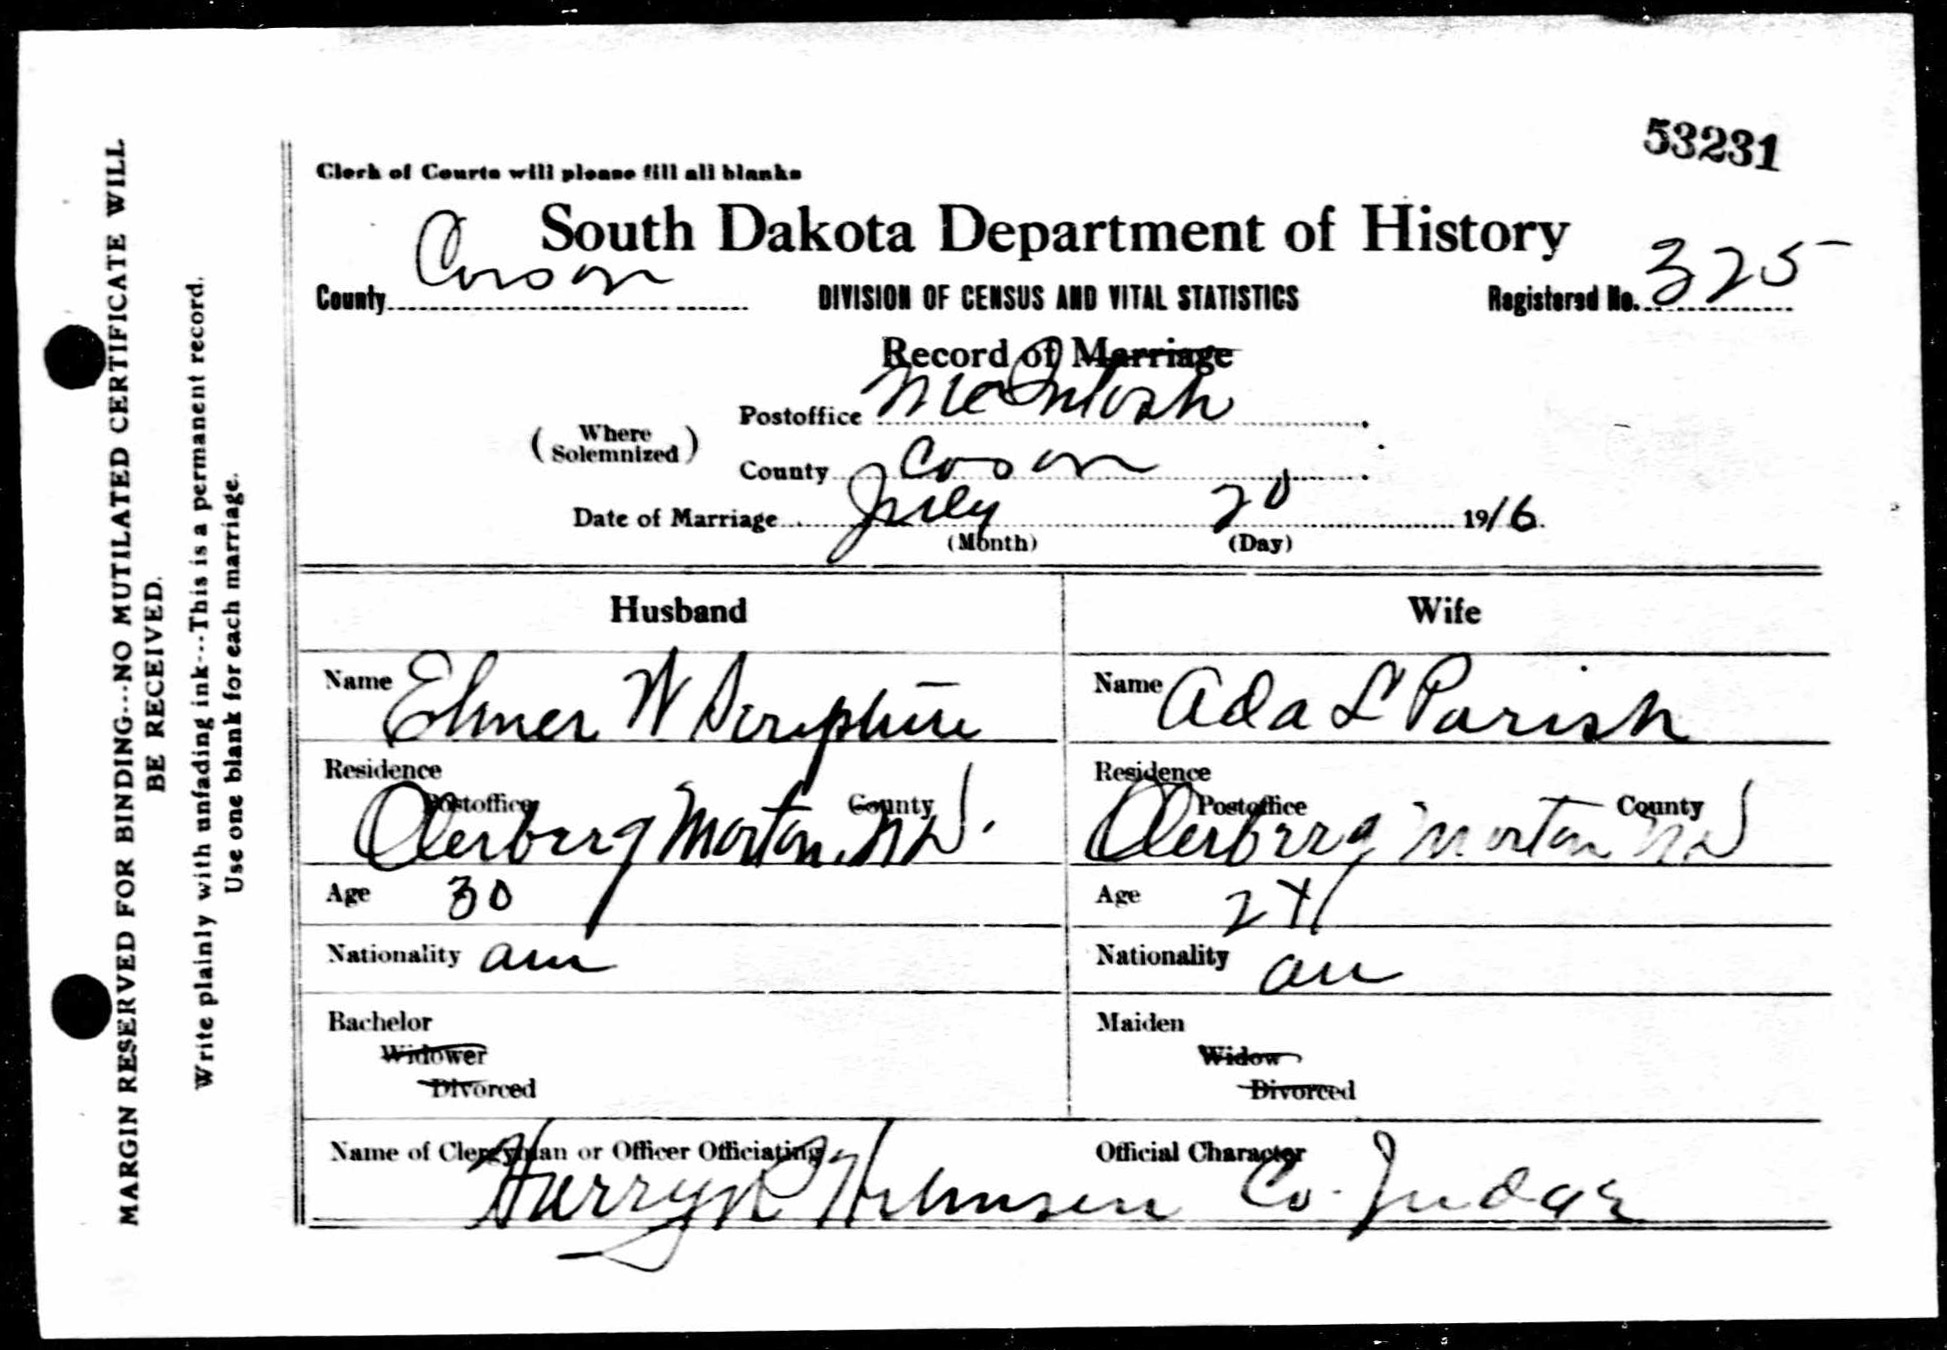 53231
Clerk of Courts will please fill all blanks
South Dakota Department of History
County Corson DIVISION OF CENSUS AND VITAL STATISTICS Registered No. 325
Record of Marriage
(Where Solemnized) Postoffice McIntosh
County Corson
Date of Marriage July 20 1916.
(Month) (Day)
Husband Wife
Name Elmer W Scripture Name Ada L Parish
Residence Residence
Postoffice County Postoffice County
Morton N D. Morton N D
Age 30 Age 24
Nationality am Nationality am
Bachelor Maiden
Widower Widow
Divorced Divorced
Name of Clergyman or Officer Officiating Official Character
Harry Co. Judge
MARGIN RESERVED FOR BINDING---NO MUTILATED CERTIFICATE WILL
BE RECEIVED.
Write plainly with unfading ink---This is a permanent record.
Use one blank for each marriage.